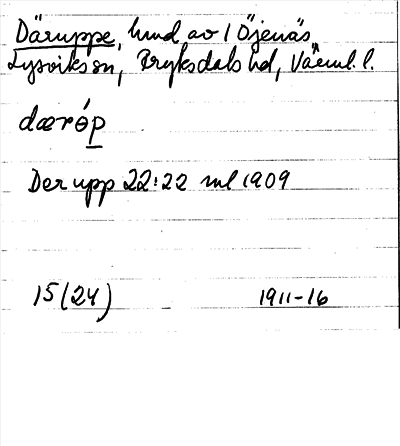 Däruppe, hmd av 1 Öjenäs,
Lysviks sn, Fryksdals hd, Värml. l.
dærǿp
Der upp 22:22 ml 1909
15 (24) 1911-16